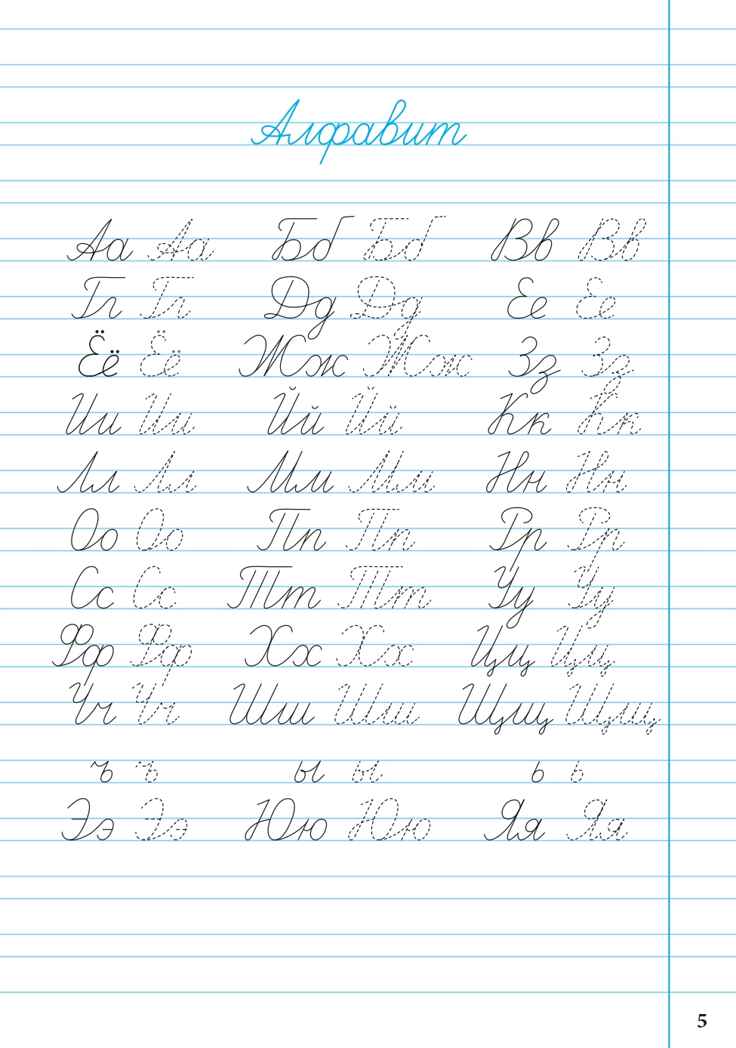 Алфавит
Аа Аа Бб Бб Вв Вв
Гг Гг Дд Дд Ее Ее
Ёё Ёё Жж Жж Зз Зз
Ии Ии Йй Йй Кк Кк
Лл Лл Мм Мм Нн Нн
Оо Оо Пп Пп Рр Рр
Сс Сс Тт Тт Уу Уу
Фф Фф Хх Хх Цц Цц
Чч Чч Шш Шш Щщ Щщ
ъ ъ ы ы ь ь
Ээ Ээ Юю Юю Яя Яя
5